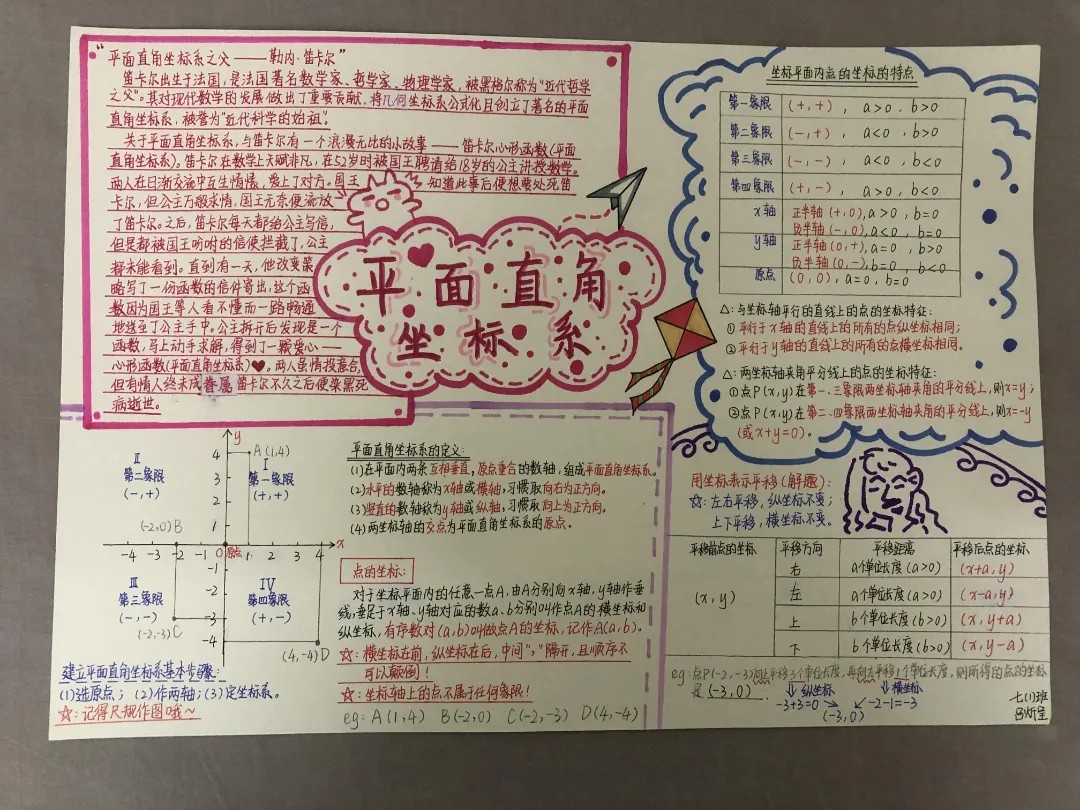 “平面直角坐标系之父——勒内·笛卡尔”
笛卡尔出生于法国,是法国著名数学家、哲学家、物理学家,被黑格尔称为“近代哲学
之父”。其对现代数学的发展做出了重要贡献,将几何坐标系公式化且创立了著名的平面
直角坐标系,被誉为“近代科学的始祖”。
关于平面直角坐标系,与笛卡尔有一个浪漫无比的小故事——笛卡尔心形函数(平面
直角坐标系)。笛卡尔在数学上天赋非凡,在52岁时被国王聘请给18岁的公主讲授数学。
两人在日渐交流中互生情愫,爱上了对方。国王 知道此事后便想要处死笛
卡尔,但公主万般求情,国王无奈便流放
了笛卡尔。之后,笛卡尔每天都给公主写信,
但是都被国王吩咐的信使拦截了,公主
未能看到。直到有一天,他改变策
略写了一份函数的信件寄出,这个函
数因为国王等人看不懂而一路畅通
地送至了公主手中。公主拆开后发现是一个
函数,马上动手求解,得到了一颗爱心——
心形函数(平面直角坐标系)♥。两人虽情投意合,
但有情人终未成眷属,笛卡尔不久之后便染黑死
病逝世。
平面直角
坐标系
坐标平面内点的坐标的特点
第一象限 (+,+), a>0, b>0
第二象限 (-,+), a<0, b>0
第三象限 (-,-), a<0, b<0
第四象限 (+,-), a>0, b<0
x轴 正半轴(+,0),a>0,b=0
负半轴(-,0),a<0,b=0
y轴 正半轴(0,+),a=0,b>0
负半轴(0,-),b=0,b<0
原点 (0,0),a=0,b=0
△:与坐标轴平行的直线上的点的坐标特征:
①平行于x轴的直线上的所有的点纵坐标相同;
②平行于y轴的直线上的所有的点横坐标相同。
△:两坐标轴夹角平分线上的点的坐标特征:
①点P(x,y)在第一、三象限两坐标轴夹角的平分线上,则x=y;
②点P(x,y)在第二、四象限两坐标轴夹角的平分线上,则x=-y
(或x+y=0)。
y
4 A(1,4)
II I
第二象限 3 第一象限
(-,+) 2 (+,+)
(-2,0)B 1
-4 -3 -2 -1 0 原点 1 2 3 4 x
-1
III IV
第三象限 -2 第四象限
(-,-) (+,-)
-3
(-2,-3)C
-4
(4,-4)D
建立平面直角坐标系基本步骤:
(1)选原点;(2)作两轴;(3)定坐标系。
☆:记得尺规作图哦~
平面直角坐标系的定义:
(1)在平面内两条互相垂直,原点重合的数轴,组成平面直角坐标系。
(2)水平的数轴称为x轴或横轴,习惯取向右为正方向。
(3)竖直的数轴称为y轴或纵轴,习惯取向上为正方向。
(4)两坐标轴的交点为平面直角坐标系的原点。
点的坐标:
对于坐标平面内的任意一点A,由A分别向x轴,y轴作垂
线,垂足于x轴、y轴对应的数a、b分别叫作点A的横坐标和
纵坐标,有序数对(a,b)叫做点A的坐标,记作A(a,b)。
☆:横坐标在前,纵坐标在后,中间“,”隔开,且顺序不
可以颠倒!
☆:坐标轴上的点不属于任何象限!
eg:A(1,4) B(-2,0) C(-2,-3) D(4,-4)
用坐标表示平移(解题):
☆:左右平移,纵坐标不变;
上下平移,横坐标不变。
平移前点的坐标 平移方向 平移距离 平移后点的坐标
(x,y) 右 a个单位长度(a>0) (x+a,y)
左 a个单位长度(a>0) (x-a,y)
上 b个单位长度(b>0) (x,y+a)
下 b个单位长度(b>0) (x,y-a)
eg:点P(-2,-3)向上平移3个单位长度,再向左平移1个单位长度,则所得的点的坐标
是(-3,0)
⇓纵坐标 ⇓横坐标
-3+3=0 -2-1=-3
(-3,0)
七(1)班